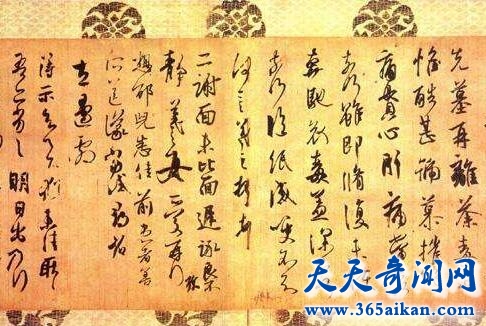 先墓再離荼毒
惟酷甚號慕摧
痛貫心肝痛當
奈何雖即脩復未
奔馳哀毒益深
奈何臨紙感哽不知
何言羲之頓首
二謝面未比面遲詠良
靜羲之女愛再拜
想邵兒悉佳前患者善
所送議當試尋省
左邊劇
得示知足下猶未佳耿
吾亦劣劣明日出乃行
天天奇闻网
www.365aikan.com